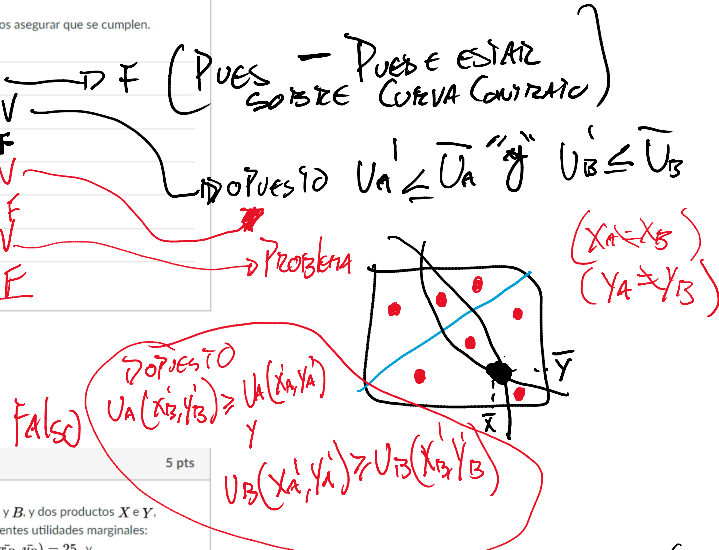 os asegurar que se cumplen.
F (PUES - PUEDE ESTAR
SOBRE CURVA CONTRATO)
V
F
OPUESTO UA' ≤ U̅A "y" UB' ≤ U̅B
V
F
V
PROBLEMA
F
(XA=XB)
(YA≠YB)
Y̅
X̅
OPUESTO
UA(X'B,Y'B) ≥ UA(X'A,Y'A)
Y
UB(X'A,Y'A) ≥ UB(X'B,Y'B)
FALSO
5 pts
y B, y dos productos X e Y,
entes utilidades marginales:
= 25, y